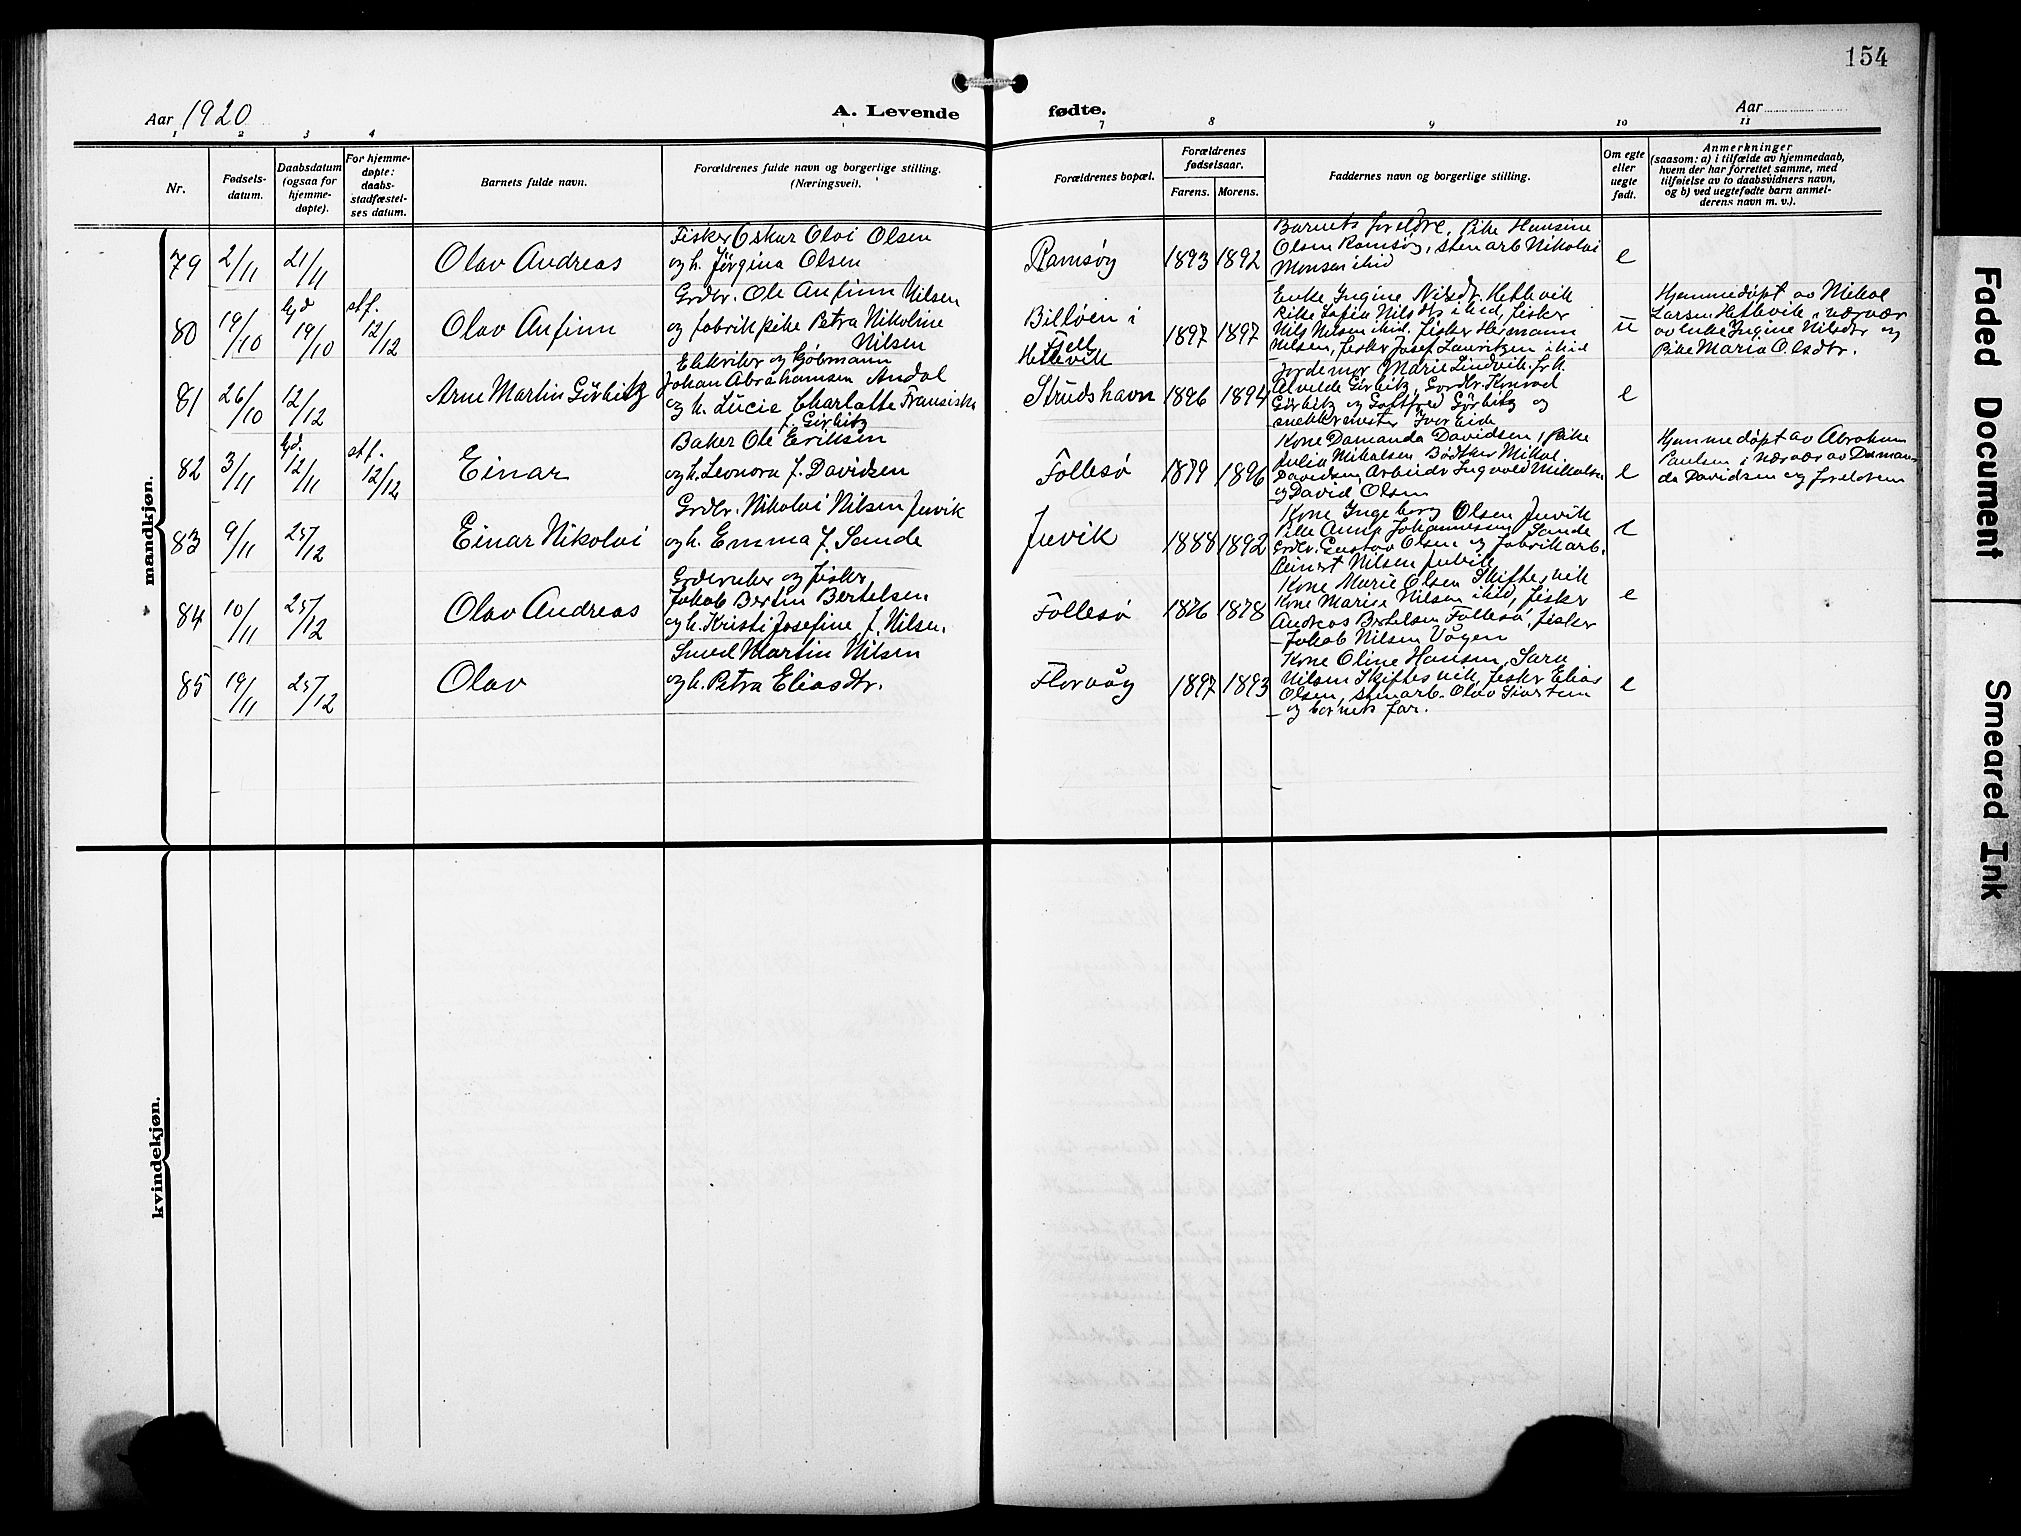 154
Aar 1920
A. Levende fødte.
Aar
1 2 3 4 7 8 9 10 11
Nr.
Fødsels-
datum.
Daabsdatum
(ogsaa for
hjemme-
døpte).
For hjemme-
døpte:
daabs-
stadfæstel-
ses datum.
Barnets fulde navn.
Forældrenes fulde navn og borgerlige stilling.
(Næringsvei).
Forældrenes bopæl.
Forældrenes
fødselsaar.
Farens. Morens.
Faddernes navn og borgerlige stilling.
Om egte
eller
uegte
født.
Anmerkninger
(saasom: a) i tilfælde av hjemmedaab,
hvem der har forrettet samme, med
tilføielse av to daabsvidners navn,
og b) ved uegtefødte barn anmel-
derens navn m. v.).
mandkjøn.
79 2/11 21/11 Olav Andreas
Fisker Oskar Olai Olsen
og h. Jørgina Olsen
Ramsøy 1893 1892
Barnets foreldre, Pike Hansine
Olsen Ramsøy, stenarb Nikolai
Monsen ibid
e
80 19/10 hjd 19/10 stf. 12/12 Olav Anfinn
Grdbr. Ole Anfinn Nilsen
og fabrikpike Petra Nikoline
Nilsen
Billøen i
Fjell
Hettevik
1897 1897
Enke Ingine Nilsdr. Hettevik
Pike Sofie Nilsdtr ibid, fisker
Nils Nilsen ibid. fisker Hermann
Nilsen, fisker Josef Lauritzen ibid
u
Hjemmedøpt av Mikal
Larsen Hettevik i nærvær
av enke Ingine Nilsdtr og
Pike Maria Olsdtr.
81 26/10 12/12 Arne Martin Görbitz
Elektriker og kjøbmann
Johan Abrahamsen Andal
og h. Lucie Charlotte Fransiska
f. Görbitz
Strudshavn 1896 1894
Jordemor Marie Lindvik, frk.
Alvilde Görbitz, Gordbr. Konrad
Görbitz og Gottfred Görbitz og
snekkermester Iver Eide
e
82 3/11 hjd. 12/11 stf. 12/12 Einar
Baker Ole Eriksen
og h. Leonora f. Davidsen
Follesø 1879 1896
Kone Damanda Davidsen, Pike
Julia Mikalsen Bödtker Mikal
Davidsen, Arbeider Ingvald Mikalsen
og David Olsen
e
Hjemmedøpt av Abraham
Paulsen i nærvær av Daman-
da Davidsen og foreldrene
83 9/11 25/12 Einar Nikolai
Grdbr. Nikolai Nilsen Juvik
og h. Emma f. Sande
Juvik 1888 1892
Kone Ingeborg Olsen Juvik
Pike Anna Johannesen Sande
Grdbr. Gustav Olsen og fabrikarb.
Nilsen Juvik
e
84 10/11 25/12 Olav Andreas
Grdbruker og fisker
Jakob Bertin Bertelsen
og h. Kristi Josefine f. Nilsen.
Follesø 1876 1878
Kone Marie Olsen Skiftesvik
Kone Marise Nilsen ibid, fisker
Andreas Bertelsen Follesø, fisker
Jakob Nilsen Vågen
e
85 19/11 25/12 Olav
Smed Martin Nilsen
og h. Petra Eliasdtr.
Florvåg 1897 1893
Kone Oline Hansen, Sara
Nilsen Skiftesvik, fisker Elias
Olsen, stenarb. Olav Sivertsen
og barnets far.
e
kvindekjøn.
Faded Document
Smeared Ink